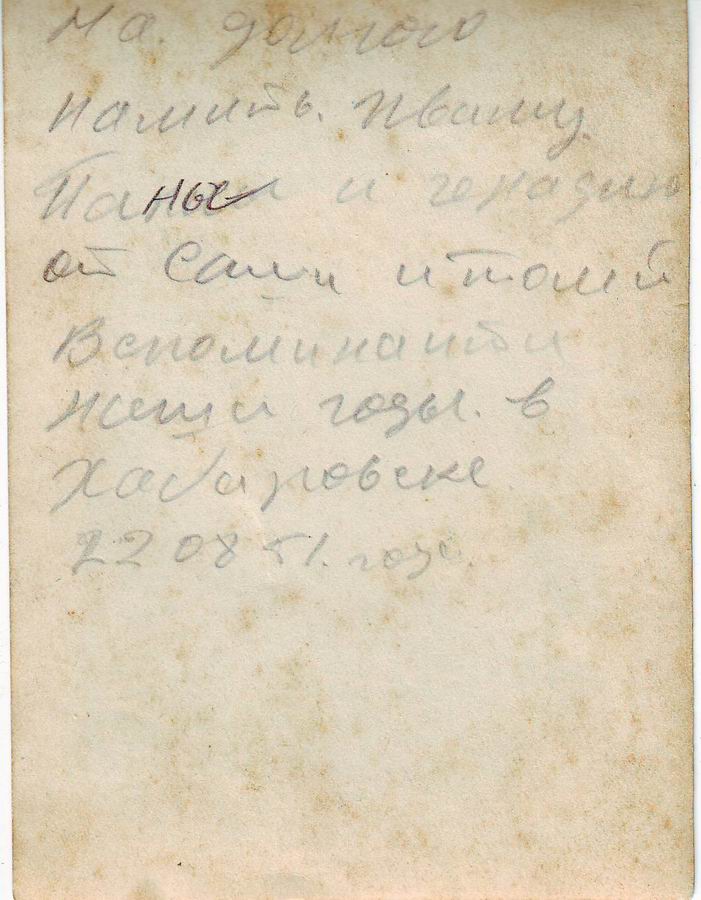 На. долгою
память. Ивану.
Паныи и генадию
от Саши и толи
Вспоминайти
наши годы. в
Хабаровске
22 08 51. года.